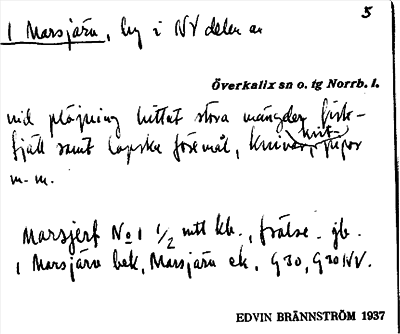 5
1 Marsjärv, by i NV delen av
Överkalix sn o. tg Norrb. l.
vid plöjning hittat stora mängder fisk-
fjäll samt lapska föremål, knivar, kritpipor
m.m.
Marsjerf No 1 1/2 mtt kb., frälse. jb.
1 Marsjärv bek, Marsjärv ek. G30, G30NV.
EDVIN BRÄNNSTRÖM 1937